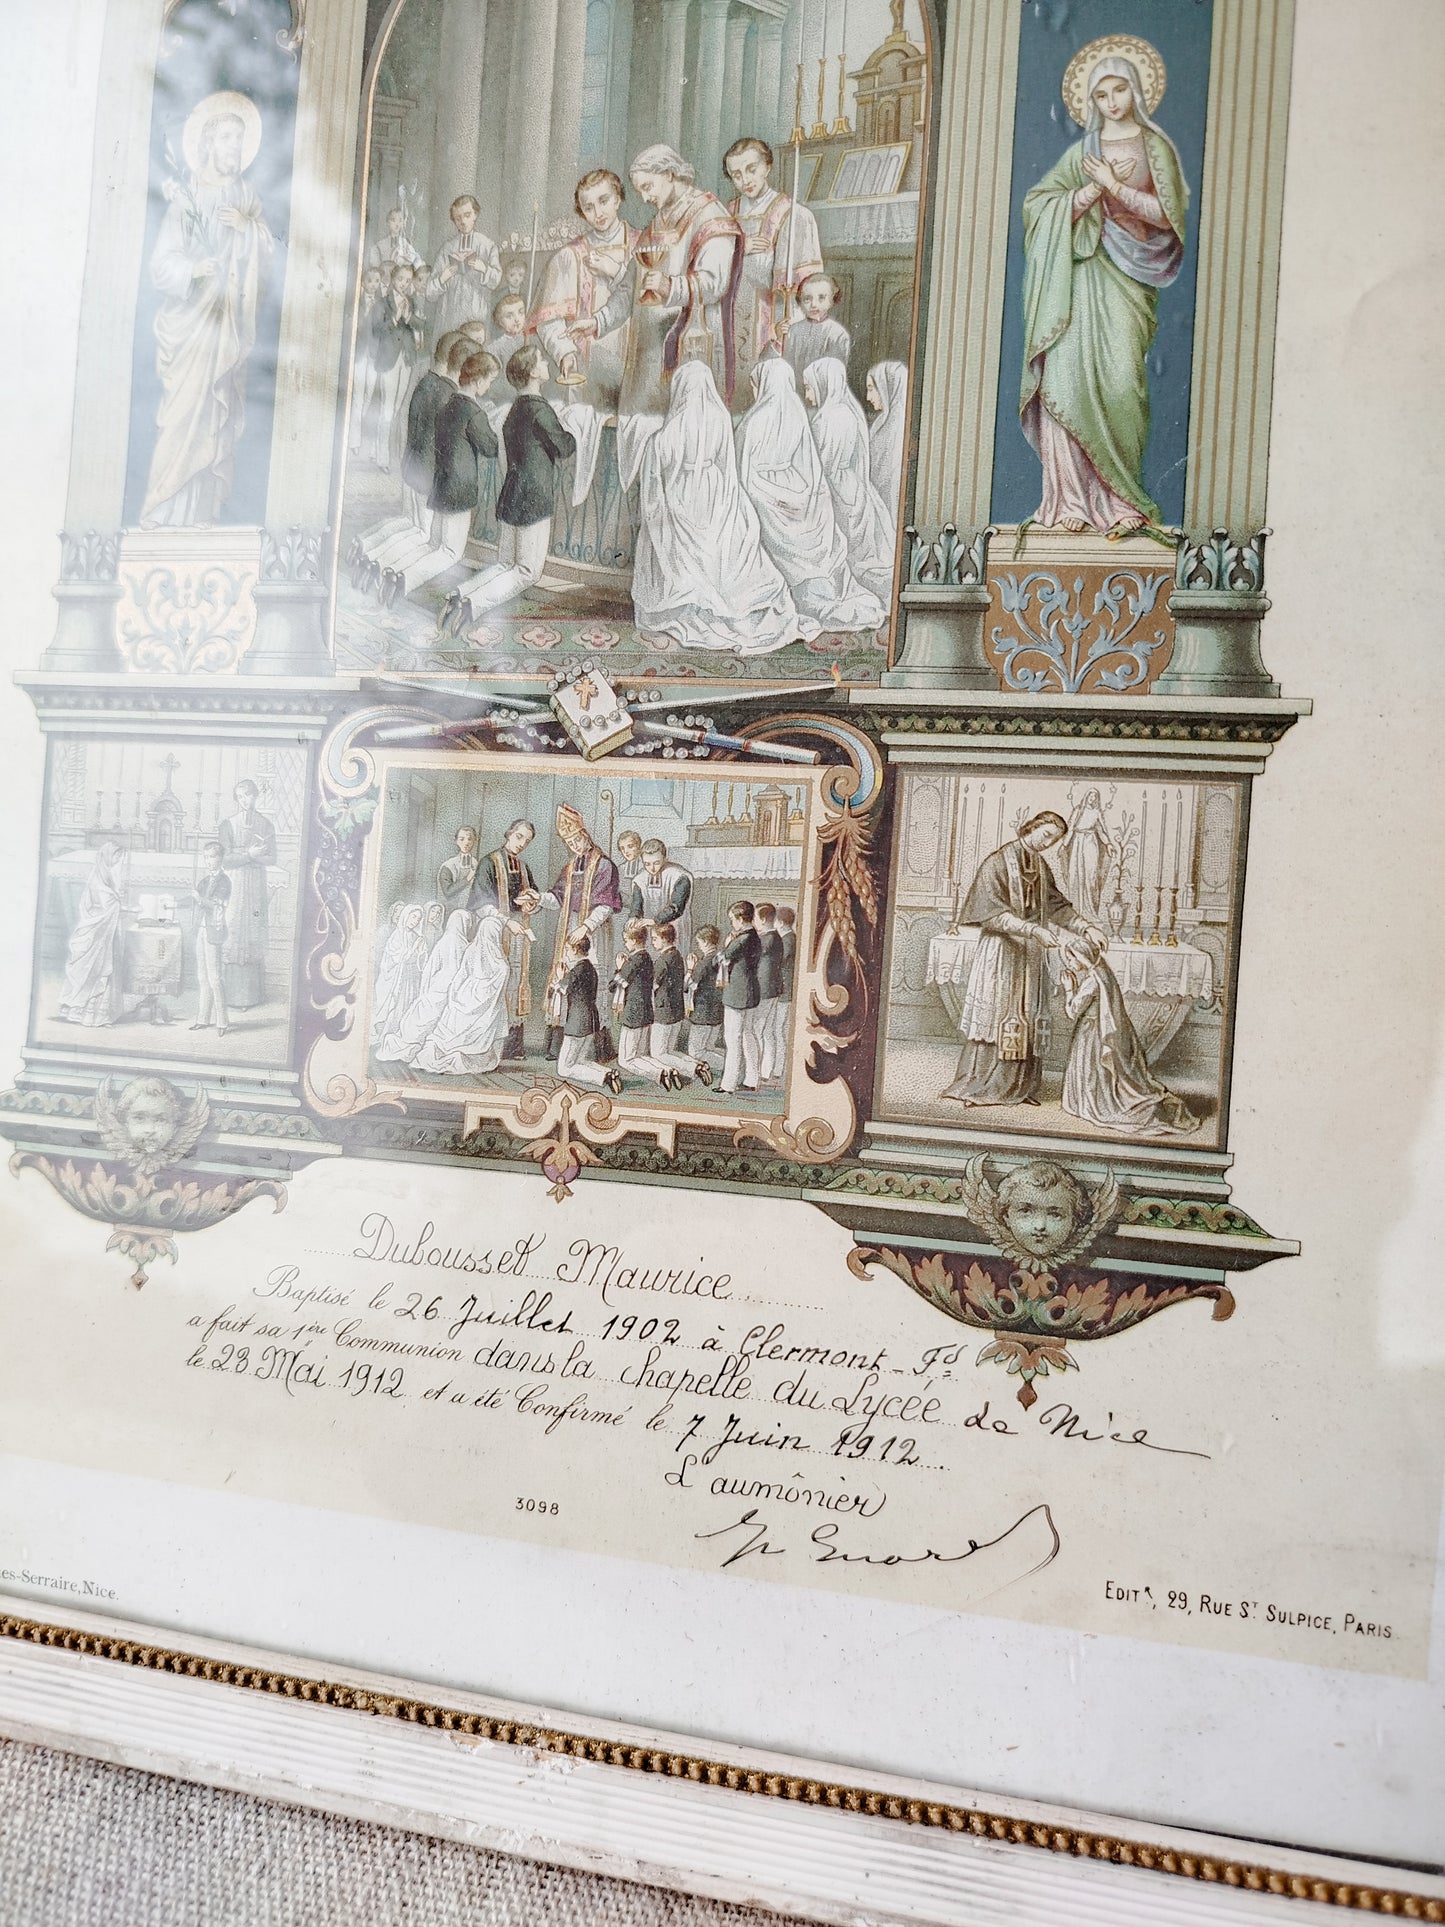 Dubousset Maurice
Baptisé le 26 Juillet 1902 à Clermont-Fd
a fait sa 1ère Communion dans la chapelle du Lycée de Nice
le 23 Mai 1912 et a été Confirmé le 7 Juin 1912.
L'aumônier
3098
es-Serraire, Nice.
EDITR, 29, RUE ST SULPICE, PARIS